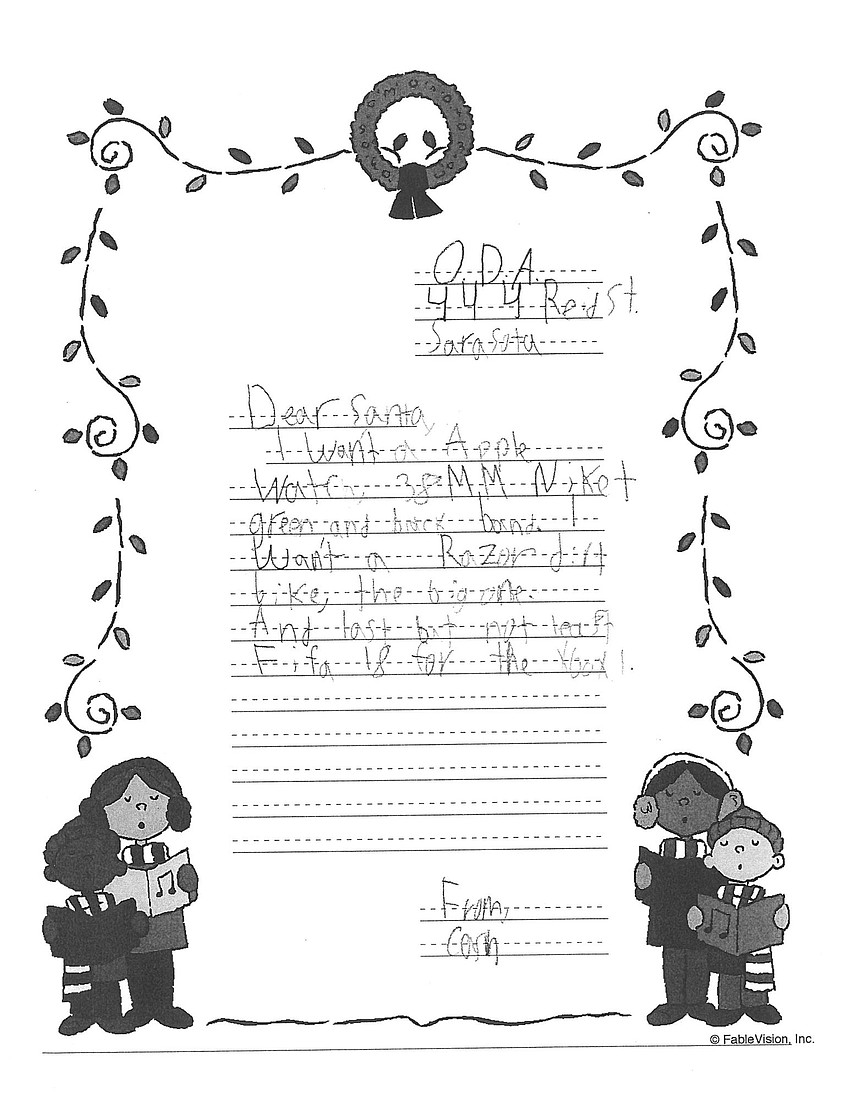 O.D.A.
444 Reid St.
Sarasota
Dear Santa,
I want a Apple
Watch, 38 MM Niket
green and back band. I
Want a Razor dirt
bike, the big one.
And last but not least
Fifa 18 for the Xbox 1.
From,
Cash
© FableVision, Inc.